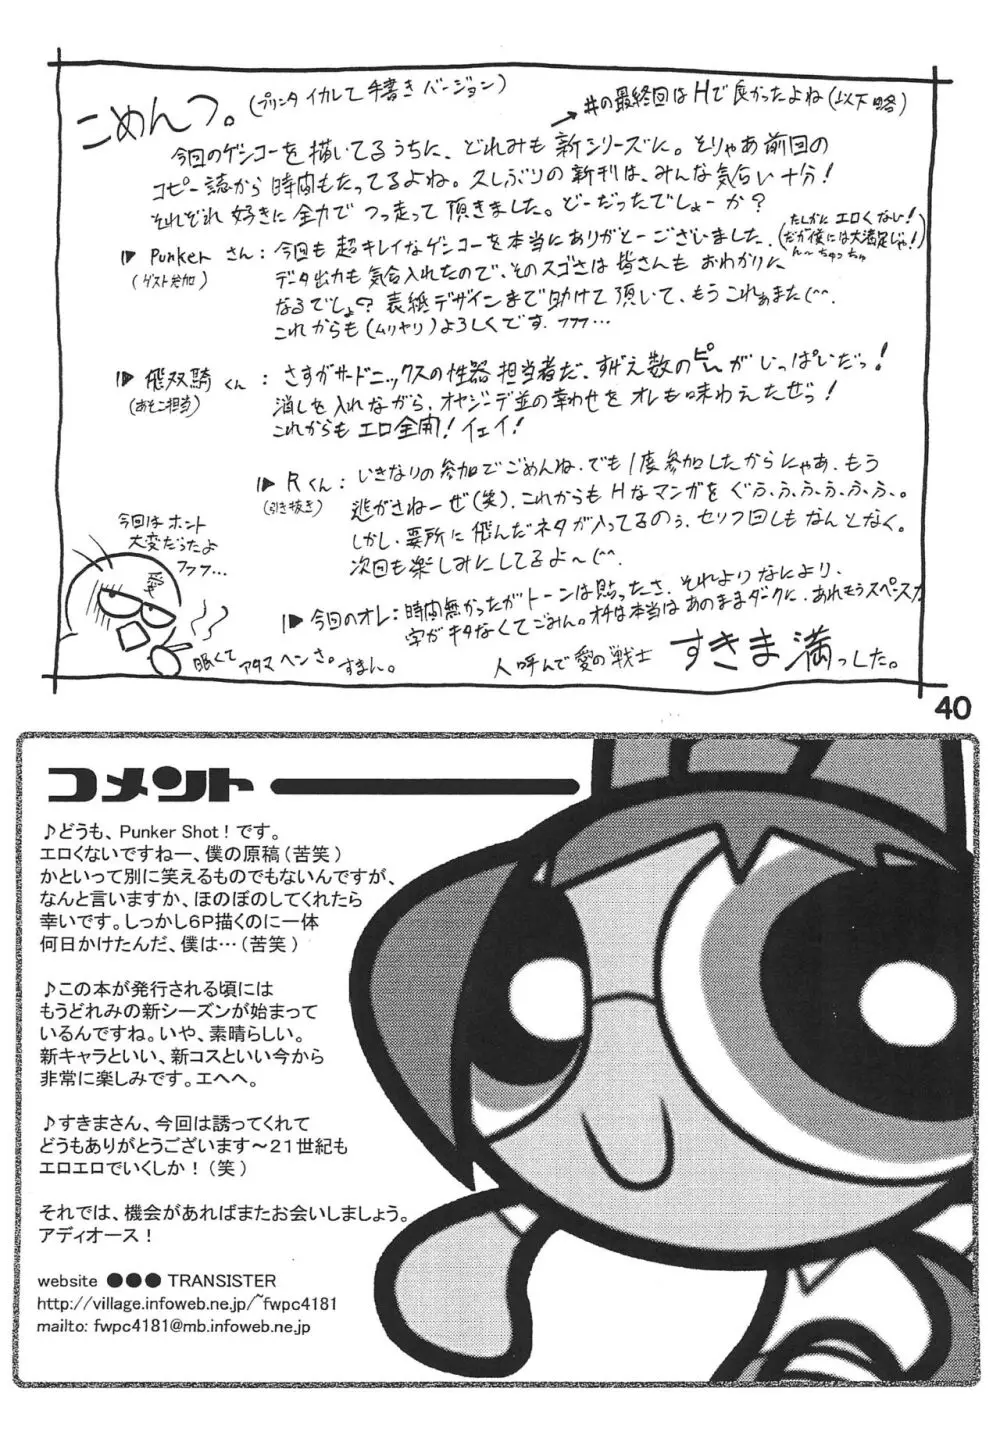 こめんつ。(プリンタイカレて手書きバージョン)
→#の最終回はHで良かったよね(以下略)
今回のゲンコーを描いてるうちに、どれみも新シリーズに。そりゃあ前回の
コピー誌から時間もたってるよね。久しぶりの新刊は、みんな気合い十分!
それぞれ好きに全力でつっ走って頂きました。どーだったでしょーか?
▶Punkerさん:今回も超キレイなゲンコーを本当にありがとーございました。(たしかにエロくない!
(ゲスト参加)
だが僕には大満足じゃ!)
ん〜ちゅっちゅ
データ出力も気合入れたので、そのスゴさは皆さんもおわかりに
なるでしょ?表紙デザインまで助けて頂いて、もうこれぁまた(^^
これからも(ムリヤリ)よろしくです。フフフ…
▶飛双騎くん:さすがサードニックスの性器担当者だ、すげえ数のピーがいっぱいだっ!
(あそこ担当)
消しを入れながら、オヤジーデ並の幸わせをオレも味わえたぜっ!
これからもエロ全開!イェイ!
▶Rくん:いきなりの参加でごめんね。でも1度参加したからにゃあ、もう
(引き抜き)
逃がさねーぜ(笑)。これからもHなマンガをぐふふふふふふふ。
しかし、要所に飛んだネタが入ってるのぅ、セリフ回しもなんとなく。
次回も楽しみにしてるよ〜(^^
▶今回のオレ:時間無かったがトーンは貼ったさ、それよりなにより、
字がキタなくてごみん。オチは本当はあのままダークに、あれもうスペースが
人呼んで愛の戦士 すきま満っした。
今回はホント
大変だったよ
フフフ…
愛
眠くてアタマヘンさ。すまん。
40
コメント
♪どうも、Punker Shot!です。
エロくないですねー、僕の原稿(苦笑)
かといって別に笑えるものでもないんですが、
なんと言いますか、ほのぼのしてくれたら
幸いです。しっかし6P描くのに一体
何日かけたんだ、僕は…(苦笑)
♪この本が発行される頃には
もうどれみの新シーズンが始まって
いるんですね。いや、素晴らしい。
新キャラといい、新コスといい今から
非常に楽しみです。エヘヘ。
♪すきまさん、今回は誘ってくれて
どうもありがとうございます〜21世紀も
エロエロでいくしか!(笑)
それでは、機会があればまたお会いしましょう。
アディオース!
website ●●● TRANSISTER
http://village.infoweb.ne.jp/~fwpc4181
mailto: fwpc4181@mb.infoweb.ne.jp